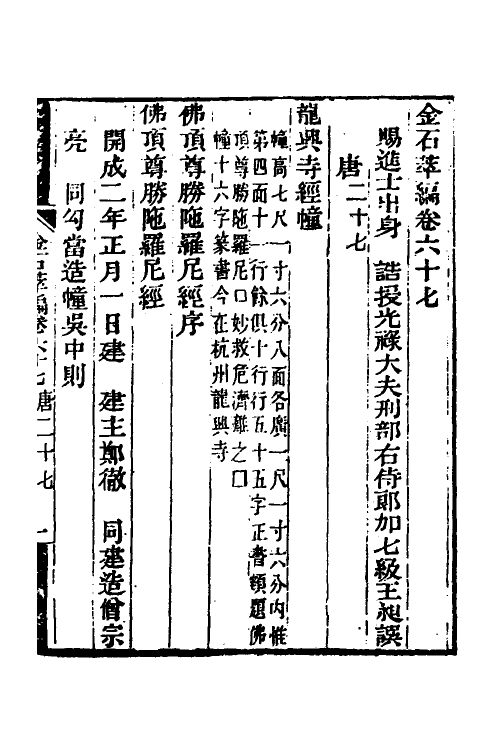 金石萃編卷六十七
賜進士出身　誥授光祿大夫刑部右侍郎加七級王昶譔
唐二十七
龍興寺經幢
幢高七尺一寸六分八面各廣一尺一寸六分內惟
第四面十一行餘俱十行行五十五字正書額題佛
頂尊勝陁羅尼口妙救危濟難之口
幢十六字篆書今在杭州龍興寺
佛頂尊勝陁羅尼經序
佛頂尊勝陁羅尼經
開成二年正月一日建　建主鄭徹　同建造僧宗
亮　同勾當造幢吳中則
金石萃編卷六十七唐二十七　一